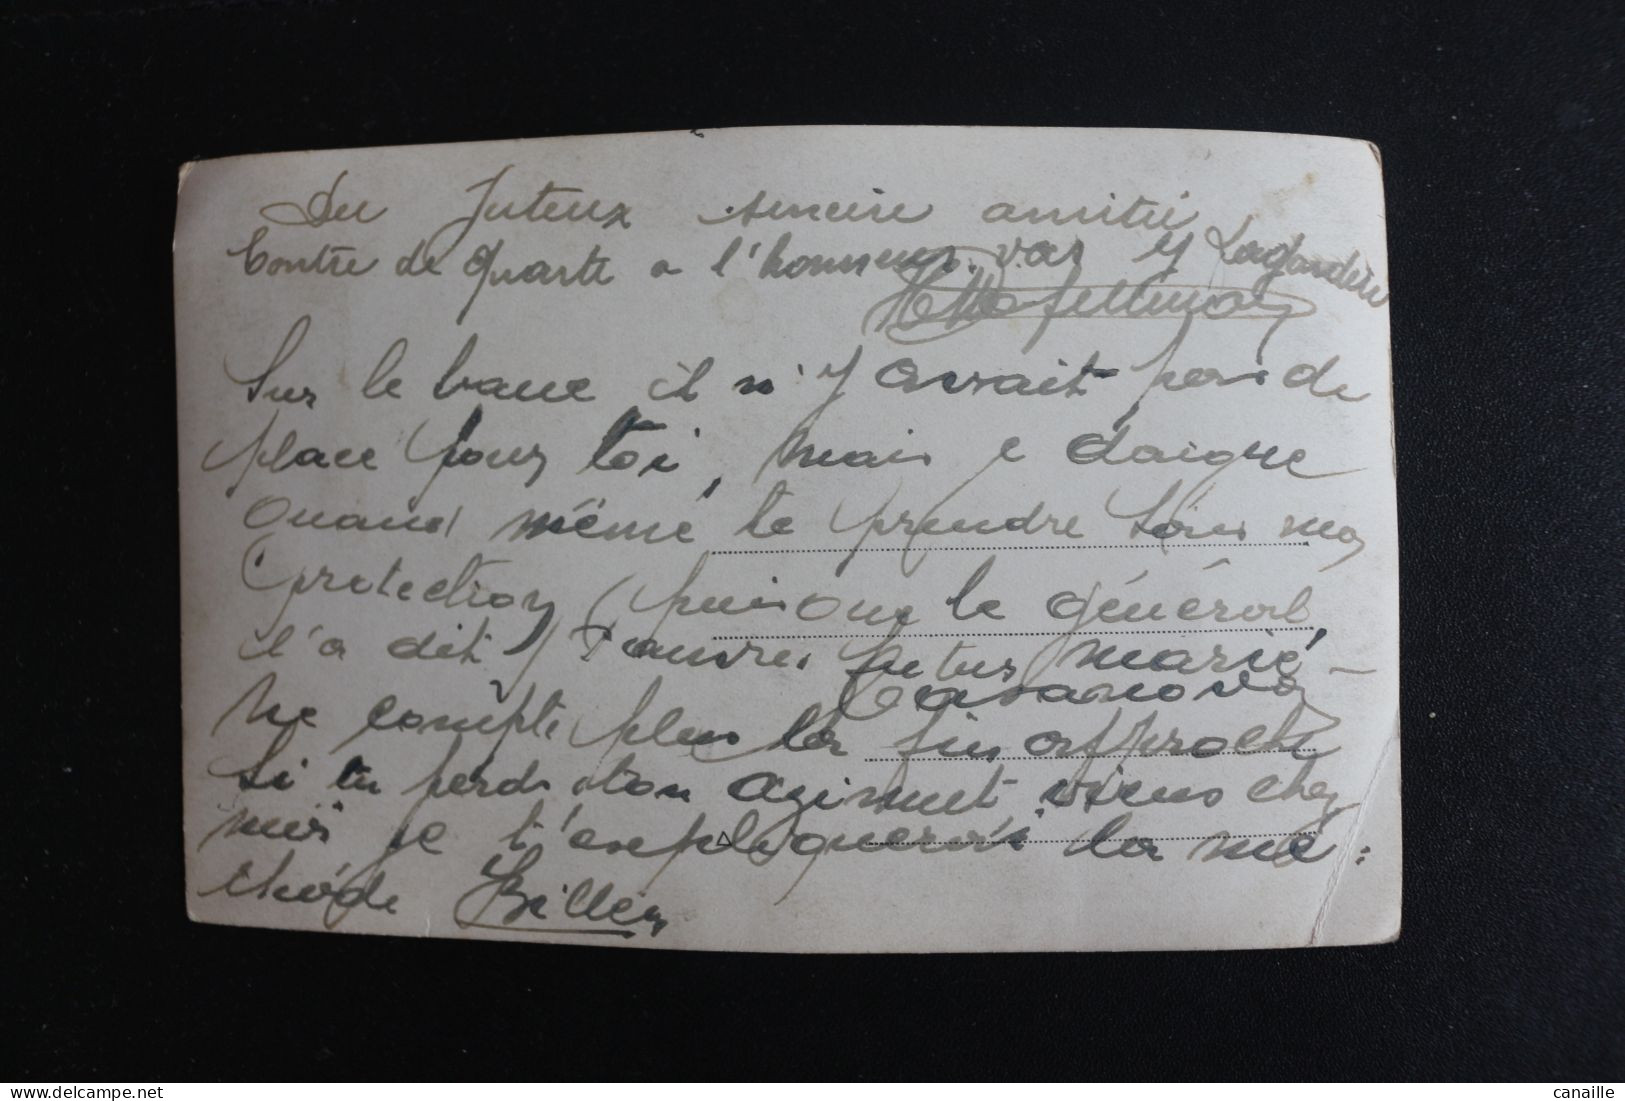 du Juteux sincère amitié
Contre de Quarte a l'honneur vas y Lagardère
Sur le banc il n'y avait pas de
place pour toi, mais je daigne
quand même te prendre sous ma
protection (puisque le général
l'a dit) Pauvre futur marié
Casanova
ne compte plus la fin approche
Si tu perds ton azimut viens chez
moi je t'expliquerai la mé
thode
canaille